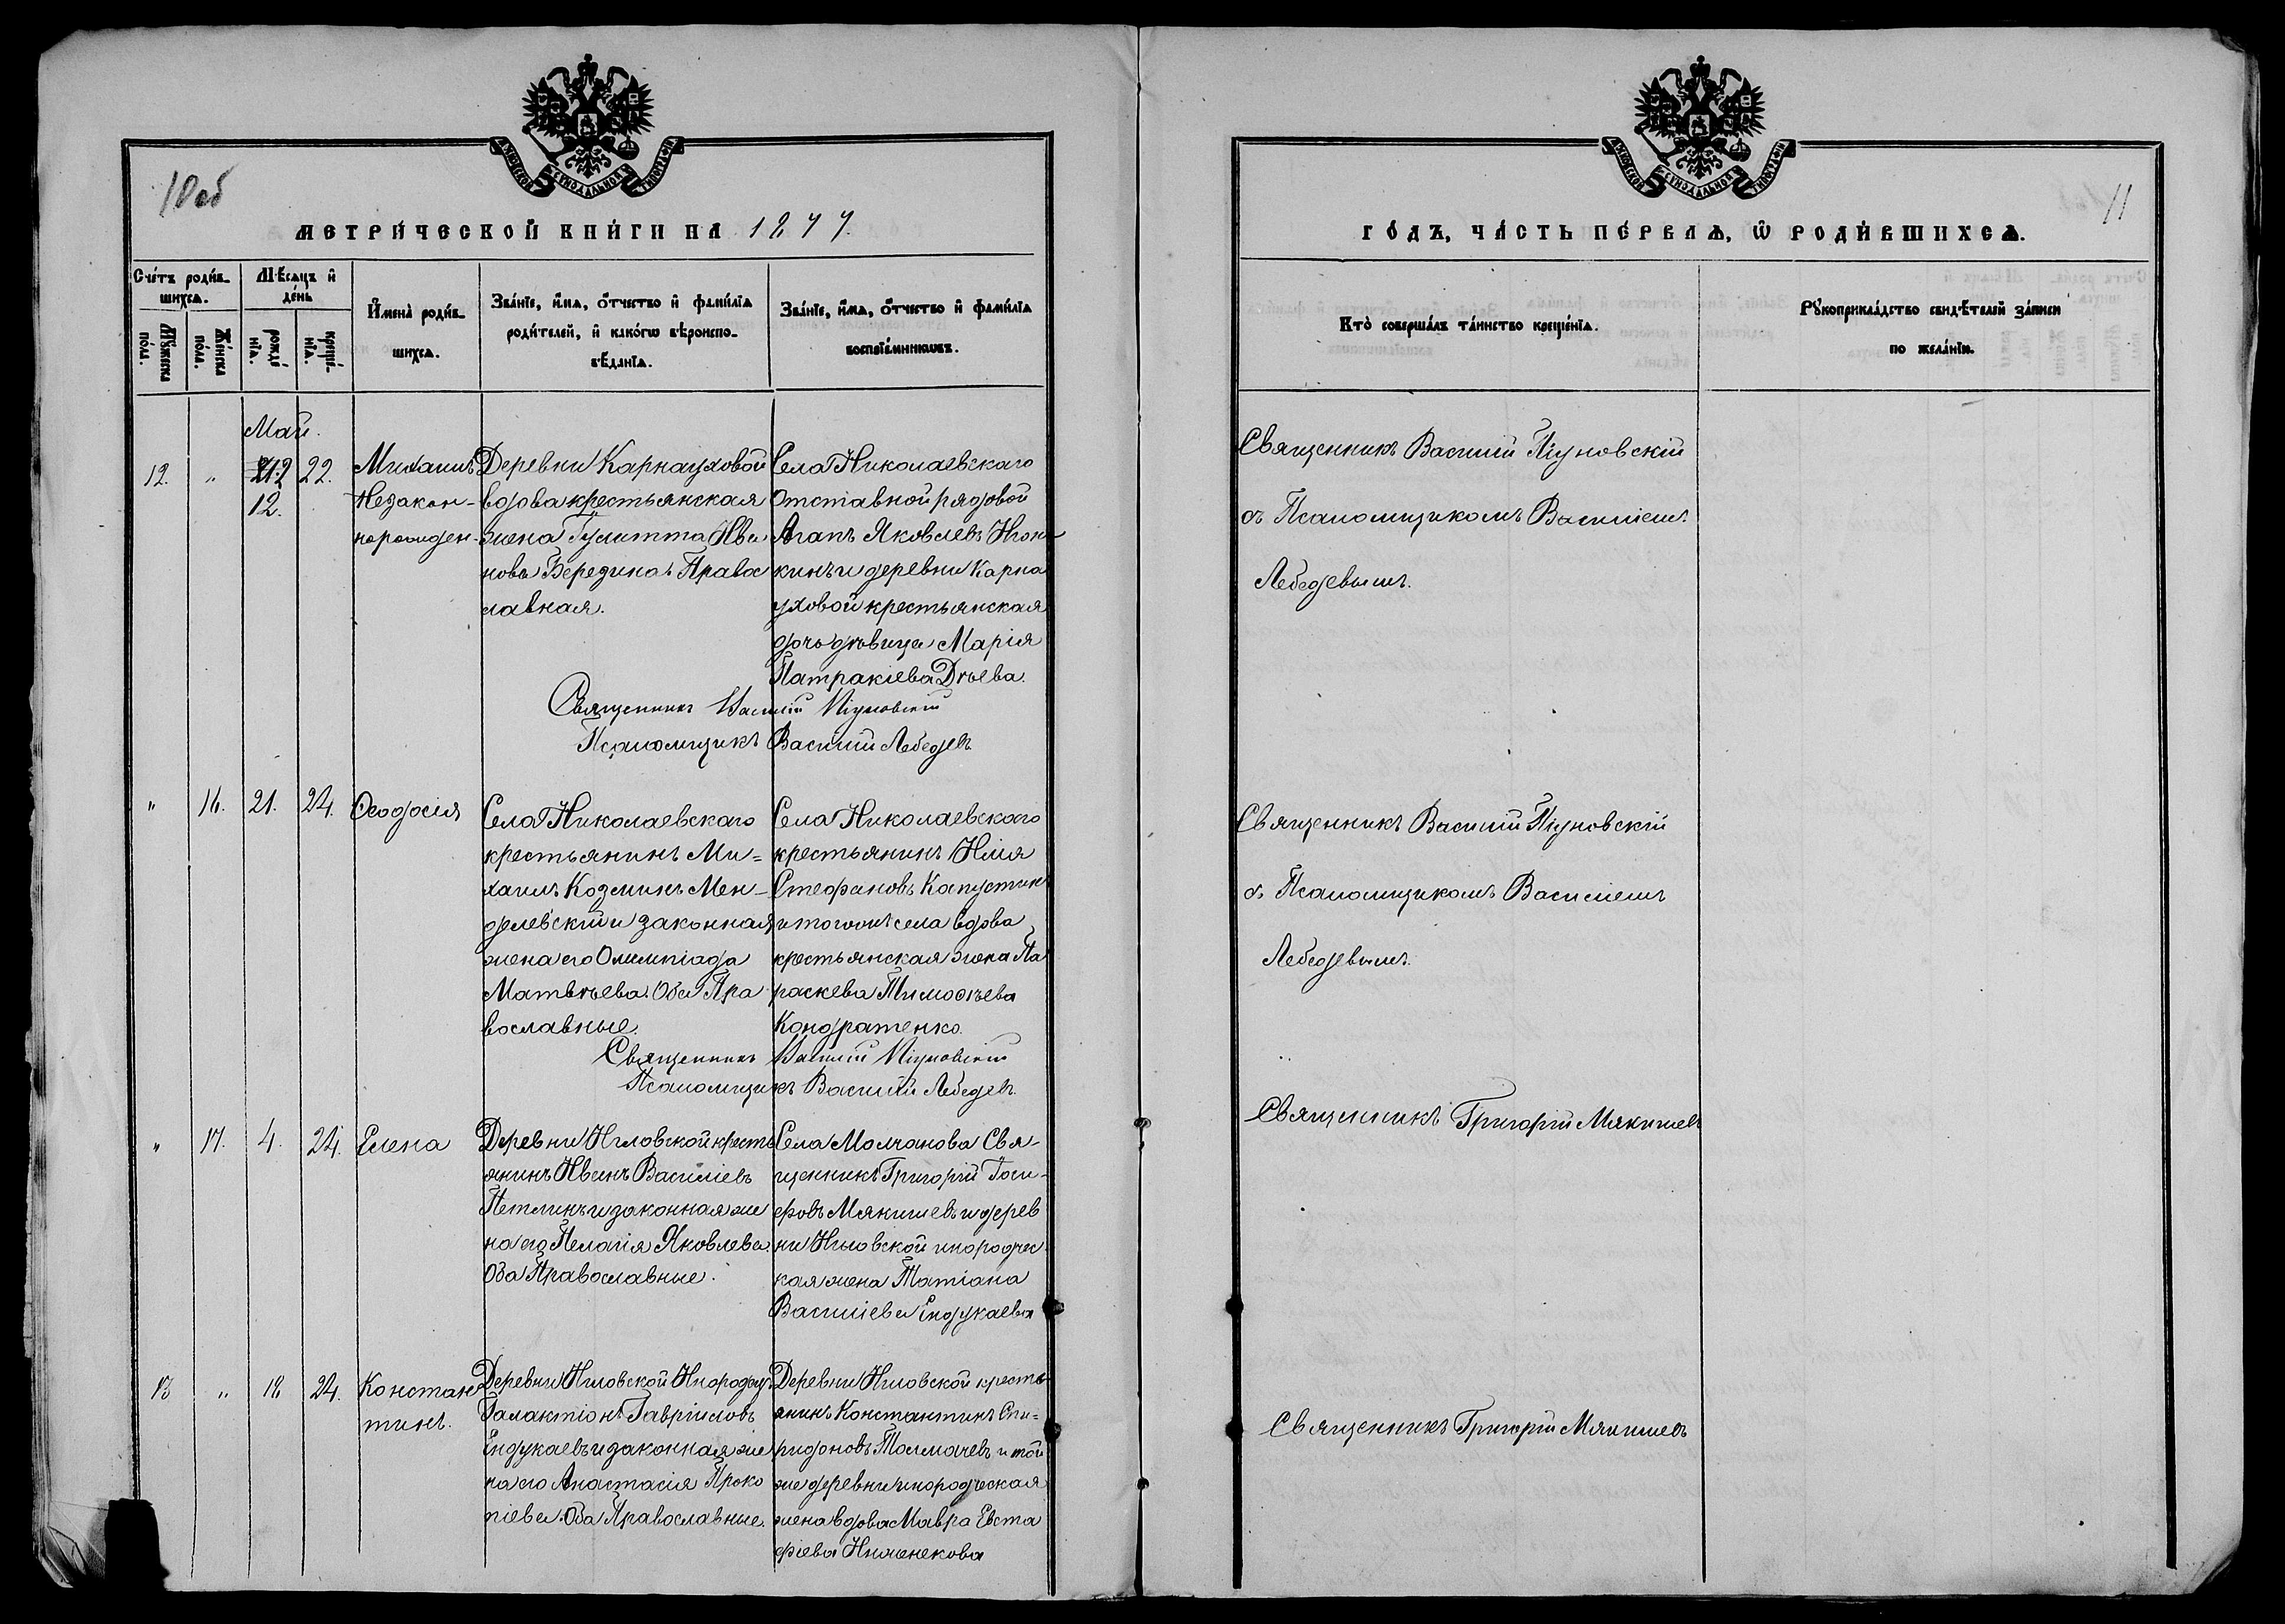 10об
МЕТРИЧЕСКОЙ КНИГИ НА 1877.
Счетъ родившихся.
Мужеска пола.
Женска пола.
Мѣсяцъ и день
рожденія.
крещенія.
Имена родившихся.
Званіе, имя, отчество и фамилія родителей, и какого вѣроисповѣданія.
Званіе, имя, отчество и фамилія воспріемниковъ.
Май.
12. " 12. 22.
Михаилъ
Незакон-
норожден-
Деревни Карнауховой
вдова крестьянская
жена Іулитта Ива
нова Бередина Право
славная.
Села Николаевскаго
Отставной рядовой
Агапъ Яковлевъ
кинъ и деревни Карна
уховой крестьянская
дочь дѣвица Марія
Патракіева Дѣева.
Священникъ Василій Піуновскій
Псаломщикъ Василій Лебедевъ
" 16. 21. 24. Ѳеодосія
Села Николаевскаго
крестьянинъ Ми-
хаилъ Козминъ Мен-
делевскій и законная
жена его Олимпіада
Матвѣева. Оба Пра
вославные.
Села Николаевскаго
крестьянинъ Илія
Стефановъ Капустинъ
и тогоже села вдова
крестьянская жена Па
раскева Тимоѳѣева
Кондратенко.
Священникъ Василій Піуновскій
Псаломщикъ Василій Лебедевъ.
" 17. 4. 24. Елена
Деревни Иловской кресть
янинъ Иванъ Василіевъ
Петлинъ и законная же
на его Пелагія Яковлева.
Оба Православные.
Села Молчанова Свя-
щенникъ Григорій Іоси-
фовъ Мякишевъ и дерев
ни Иловской инородчес
кая жена Татіана
Василіева Ендукаева
13 " 18 24. Констан
тинъ.
Деревни Иловской Инородец
Галактіонъ Гавріиловъ
Ендукаевъ и законная же
на его Анастасія Проко
піева. Оба Православные.
Деревни Иловской кресть
янинъ Константинъ Спи-
ридоновъ Толмачевъ и той
же деревни инородческая
жена вдова Мавра Евста
фіева
11
ГОДЪ, ЧАСТЬ ПЕРВАЯ, Ѡ РОДИВШИХСЯ.
Кто совершалъ таинство крещенія.
Рукоприкладство свидѣтелей записи по желанію.
Священникъ Василій Піуновскій
съ Псаломщикомъ Василіемъ
Лебедевымъ.
Священникъ Василій Піуновскій
съ Псаломщикомъ Василіемъ
Лебедевымъ.
Священникъ Григорій Мякишевъ
Священникъ Григорій Мякишевъ